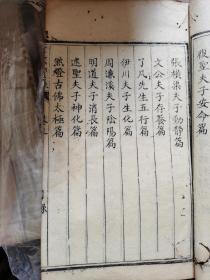 復聖夫子安命篇
張橫渠夫子動靜篇
文公夫子存養篇
了凡先生五行篇
伊川夫子生化篇
周濂溪夫子陰陽篇
明道夫子消長篇
述聖夫子神化篇
燃燈古佛太極篇